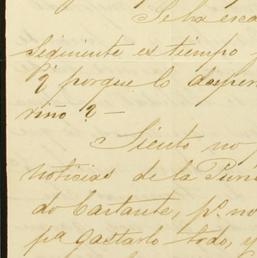 Se ha esca
siguiente es tiempo
¿Y porque lo desper
riño? —
Siento no
noticias de la Puri
do bastante, pº no
pª gastarlo todo, y